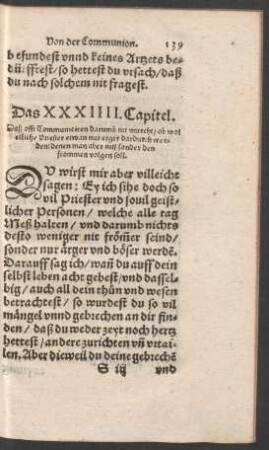 Von der Communion. 139
befundest vnnd keines Artzets be-
dürfftest/ so hettest du vrsach/ daß
du nach solchem nit fragest.
Das XXXIIII. Capitel.
Daß offt Communiciren darumb nit vnrecht/ ob wol
etliche Priester etwan nur erger dardurch wer-
den: denen man aber nit/ sonder den
frommen volgen soll.
DV wirst mir aber villeicht
sagen: Ey ich sihe doch so
vil Priester vnd souil geist-
licher Personen/ welche alle tag
Meß halten/ vnd darumb nichts
desto weniger nit frömer seind/
sonder nur ärger vnd böser werdē.
Darauff sag ich/ wañ du auff dein
selbst leben acht gebest/ vnd dassel-
big/ auch all dein thůn vnd wesen
betrachtest/ so wurdest du so vil
mängel vnnd gebrechen an dir fin-
den/ daß du weder zeyt noch hertz
hettest/ andere zurichten vñ vrtai-
len. Aber dieweil du deine gebrechē
S iij vnd